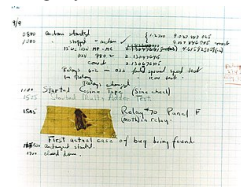 9/9
0800 Antan started
1000 " stopped - antan ✓
13" uc (032) MP - MC
(033) PRO 2
convd
Relays 6-2 in 033 failed special speed test
in relay
Relays changed
1100 Started Cosine Tape (Sine check)
1525 Started Multi Adder Test.
1545 Relay #70 Panel F
(moth) in relay.
First actual case of bug being found.
antangent started.
1700 closed down.